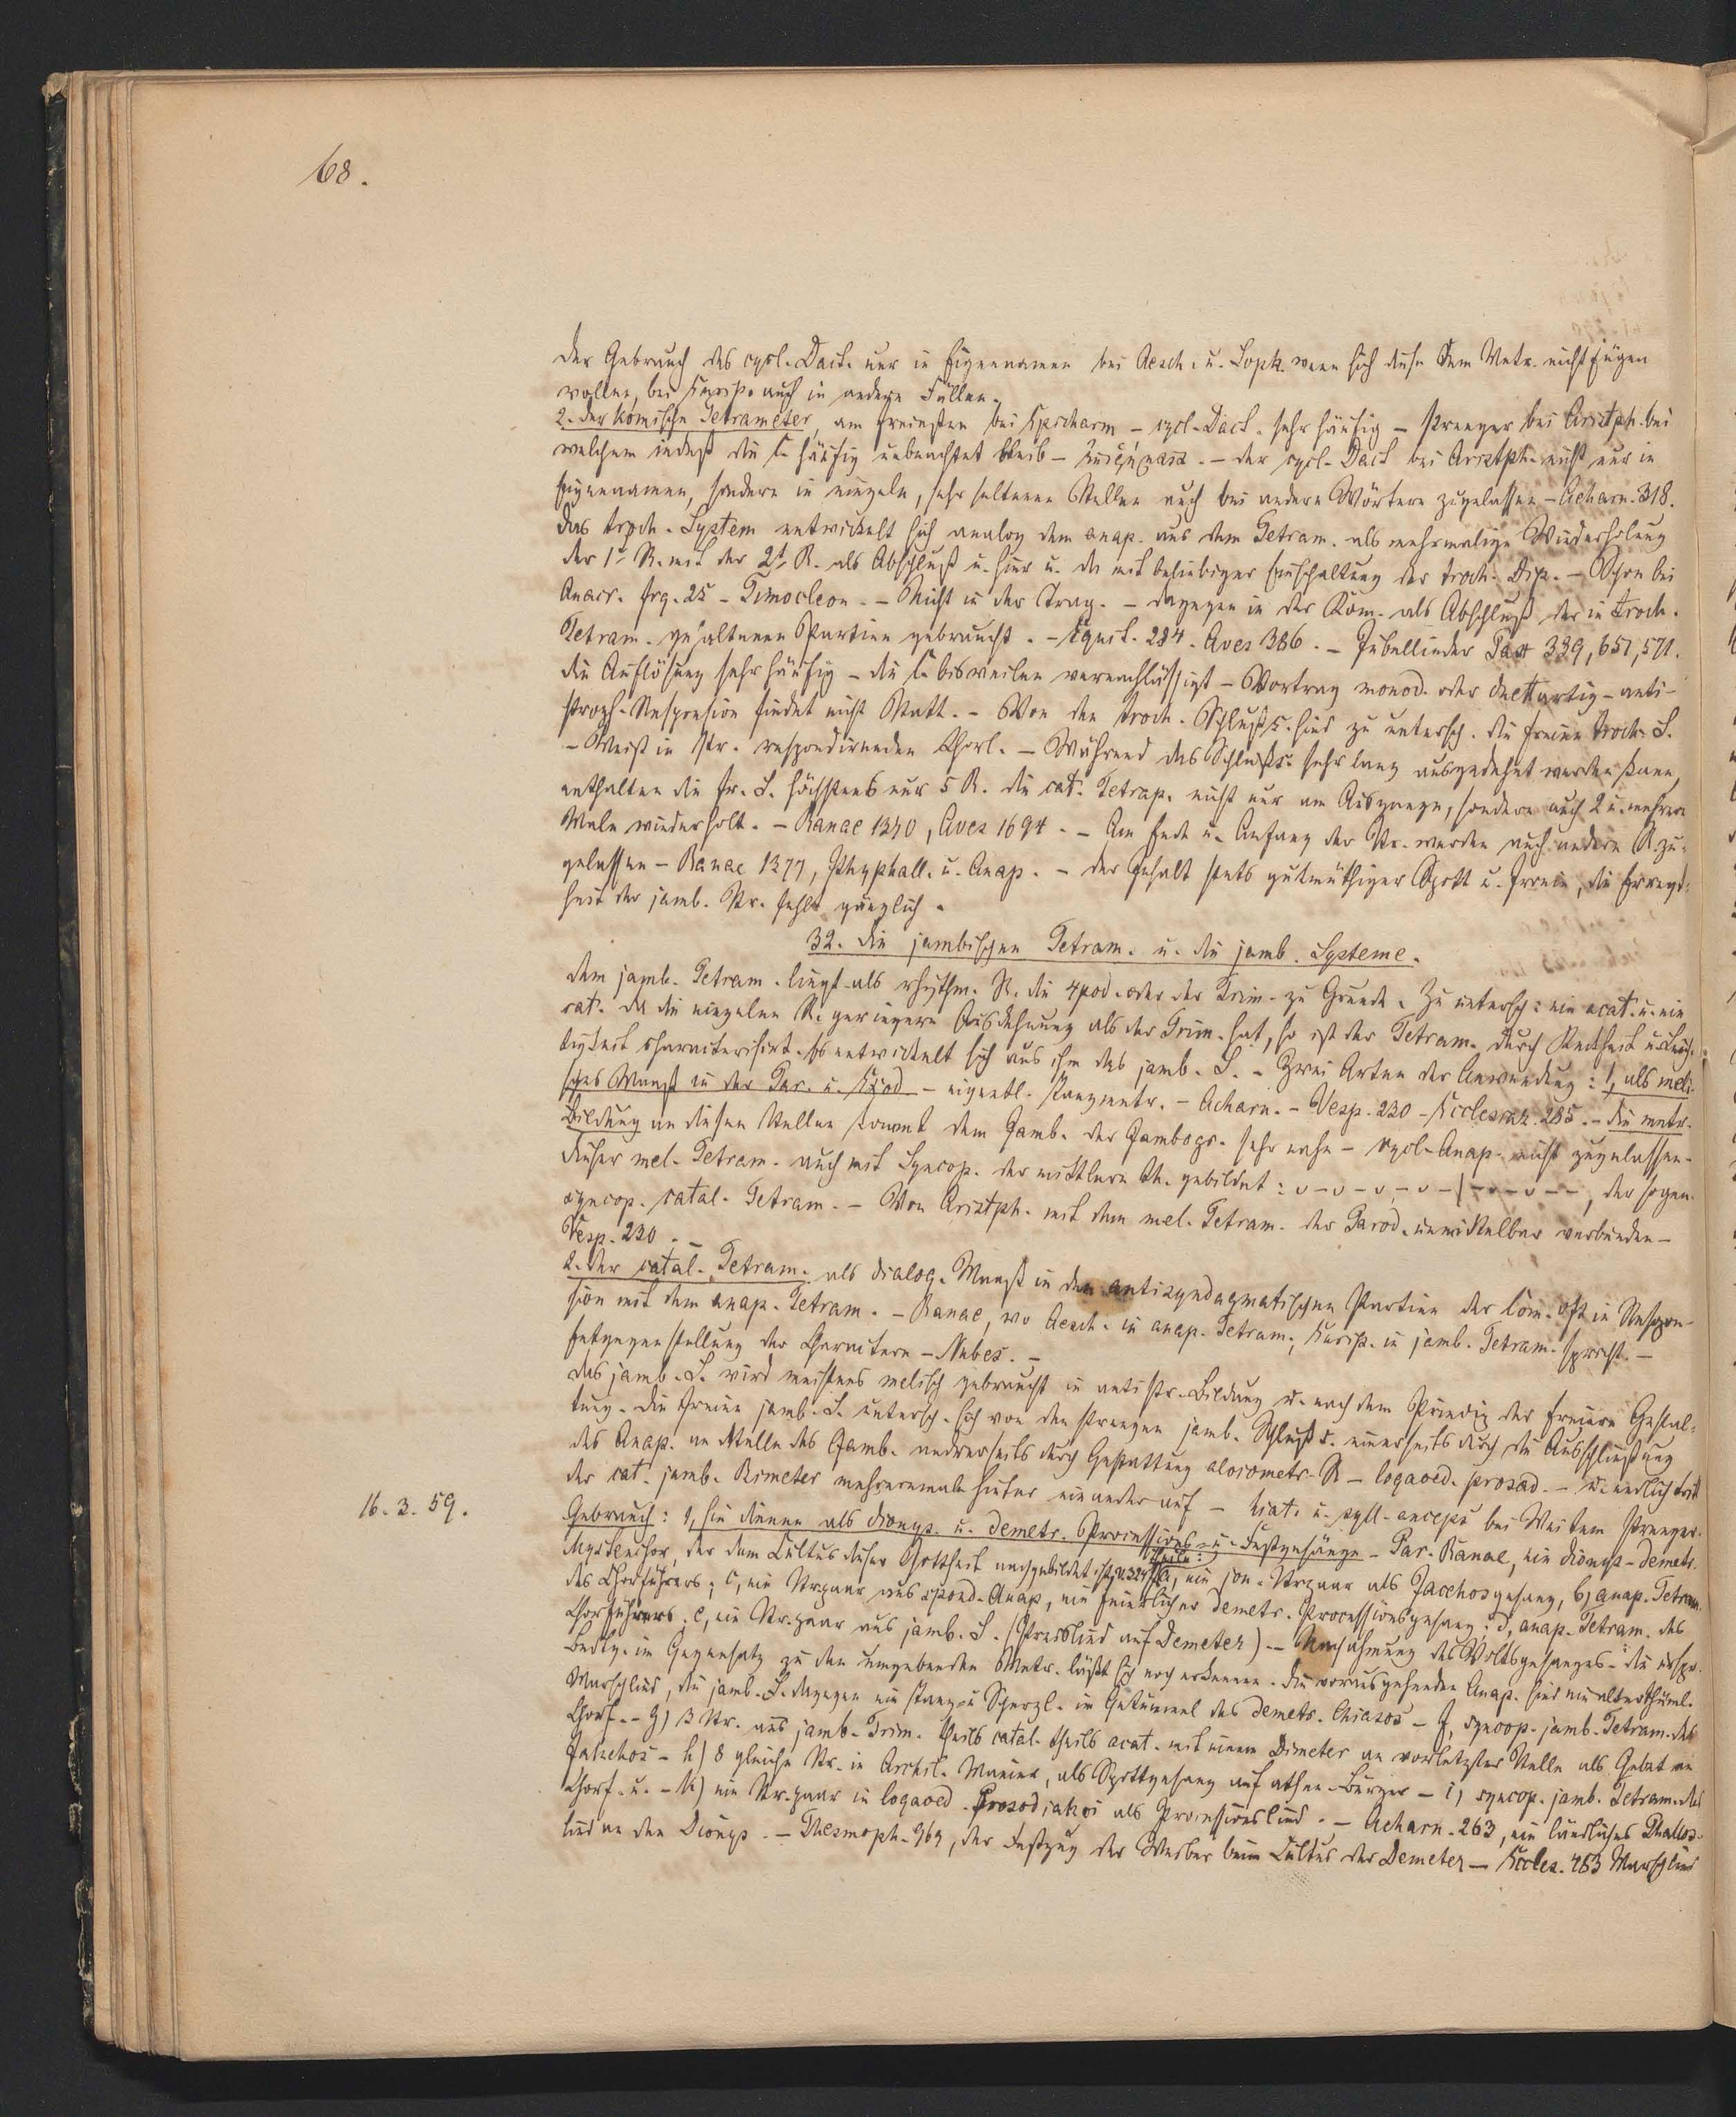 68.
Der Gebrauch des cycl. Dact. nur in Eigennamen bei Aesch. u. Soph. wenn sich diese dem Metr. nicht fügen
wollen, bei Eurip. auch in andern Fällen.
2. Der komische Tetrameter, am freiesten bei Epicharm – cycl. Dact. sehr häufig – strenger bei Aristph. bei
welchem indeß die C. häufig unbeachtet bleib – – der cycl. Dact bei Aristph. nicht nur in
Eigennamen, sondern in einzeln, sehr seltenen Stellen auch bei andern Wörtern zugelassen – Acharn. 318.
Das troch. System entwickelt sich analog dem anap. aus dem Tetram. als mehrmalige Wiederholung
der 1t R. mit der 2t R. als Abschluß u. hier u. da mit beliebiger Einschaltung der troch. Dip. – Schon bei
Anacr. frg. 25 – Timocleon. – Nicht in der Trag. – dagegen in der Kom. als Abschluß der in troch.
Tetram. gehaltenen Partien gebraucht. – Equit. 284. Aves 386. – Jubellieder Pax 339, 651, 571.
die Auflösung sehr häufig – die C. bisweilen vernachlässigt – Vortrag monod. oder duettartig – anti-
stroph. Responsion findet nicht Statt. – Von den troch. Schlußs. sind zu untersch. die freien troch. S.
– Meist in str. respondirenden Chorl. – Während das Schlußs. sehr lang ausgedehnt werden kann,
enthalten die fr. S. höchstens nur 5 R. die cat. Tetrap. nicht nur am Ausgange, sondern auch 2 u. mehrere
Male wiederholt. – Ranae 1370, Aves 1694. – Am Ende u. Anfang der Str. werden auch andere R. zu-
gelassen – Ranae 1377, Ithyphall. u. Anap. – der Inhalt stets gutmüthiger Spott u. Ironie, die Erregt-
heit der jamb. Str. fehlt gänzlich.
32. Die jambischen Tetram. u. die jamb. Systeme.
Dem jamb. Tetram. liegt als rhythm. R. die 4pod. oder der Dim. zu Grunde. Zu untersch: ein acat. u. ein
cat. Da die einzelnen R. geringere Ausdehnung als der Trim. hat, so ist der Tetram. durch Raschheit u. Leich-
tigkeit characterisirt. Es entwickelt sich aus ihm das jamb. S. – Zwei Arten der Anwendung: 1, als meli-
sches Maaß in der Par. u. Exod – eigentl. Tanzmetr. – Acharn. – Vesp. 230 – Ecclesiaz. 285. – die metr.
Bildung an diesen Stellen kommt dem Jamb. der Jambogr. sehr nahe – cycl. Anap. nicht zugelassen.
dieser mel. Tetram. auch mit Syncop. der mittlern Th. gebildet: ᴗ–ᴗ–ᴗ–ᴗ–|–ᴗ–ᴗ––, der sogen.
syncop. catal. Tetram. – Von Aristph. mit dem mel. Tetram. der Parod. unmittelbar verbunden –
Vesp. 230. –
2. der catal. Tetram. als dialog. Maaß in den antisyndagmatischen Partien der Com. oft in Respon-
sion mit dem anap. Tetram. – Ranae, wo Aesch. in anap. Tetram., Eurip. in jamb. Tetram. spricht. –
Entgegenstellung der Charactere – Nubes. –
das jamb. S. wird meistens melisch gebraucht in antistr. Bildung u. nach dem Princip der freiern Gestal-
tung. Die freien jamb. S. untersch. sich von den strengen jamb. Schlußs. einerseits durch die Ausschließung
des Anap. an Stelle des Jamb. andrerseits durch Gestattung aloiometr. R – logaoed. prosod. – u. endlich tritt
der cat. jamb. Dimeter mehreremale hinter einander auf – hiat. u. syll. anceps bei Weitem strenger.
16. 3. 59.
Gebrauch: 1, sie dienen als dionys. u. demetr. Processions- u. Festgesänge – Par. Ranae, ein dionys. demetr.
Mystenchor, der dem Cultus dieser Gottheit nachgebildet ist, v. 324 Theile: a, ein jon. Strpaar als Jacchosgesang, b, anap. Tetram.
des Chorführers; c, ein Strpaar aus spond. Anap, ein feierlicher demetr. Processionsgesang; d, anap. Tetram. des
Chorführers; e, ein Strpaar aus jamb. S. (Preislied auf Demeter) – Nachahmung des Volksgesanges – die ursp.
Bedtg. im Gegensatz zu den umgebenden Metr. läßt sich noch erkennen. die vorausgehenden Anap. sind ein alterthüml.
Marschlied, die jamb. S. dagegen ein Tanz- u. Scherzl. im Getümmel des demetr. Thiasos – f, syncop. jamb. Tetram. des
Chorf. – g) 3 Str. aus jamb. Trim. theils catal. theils acat. mit einem Dimeter an vorletzter Stelle als Gebet an
Jakchos – h) 8 gleiche Str. in Archil. Manier, als Spottgesang auf athen. Bürger – i, syncop. jamb. Tetram. des
Chorf. u. – k) ein Strpaar in logaoed. Prosodiakoi als Processionslied. – Acharn. 263, ein ländliches Phallos-
lied an den Dionys. – Thesmoph. 969, der Festzug der Weiber beim Cultus der Demeter – Eccles. 483 Marschlied